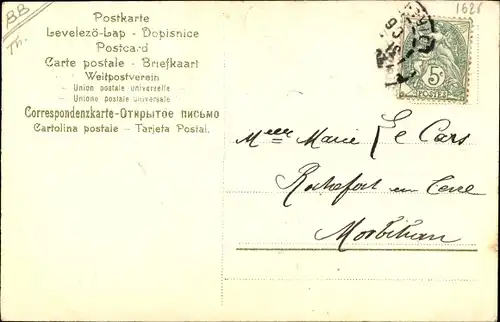 BB
Th.
1628
Postkarte
Levelezö-Lap - Dopisnice
Postcard
Carte postale - Briefkaart
Weltpostverein
- Union postale universelle -
- Unione postale universale -
Correspondenzkarte-Открытое письмо
Cartolina postale - Tarjeta Postal.
5c
POSTES
Melle Marie Le Cars
Rochefort en Terre
Morbihan